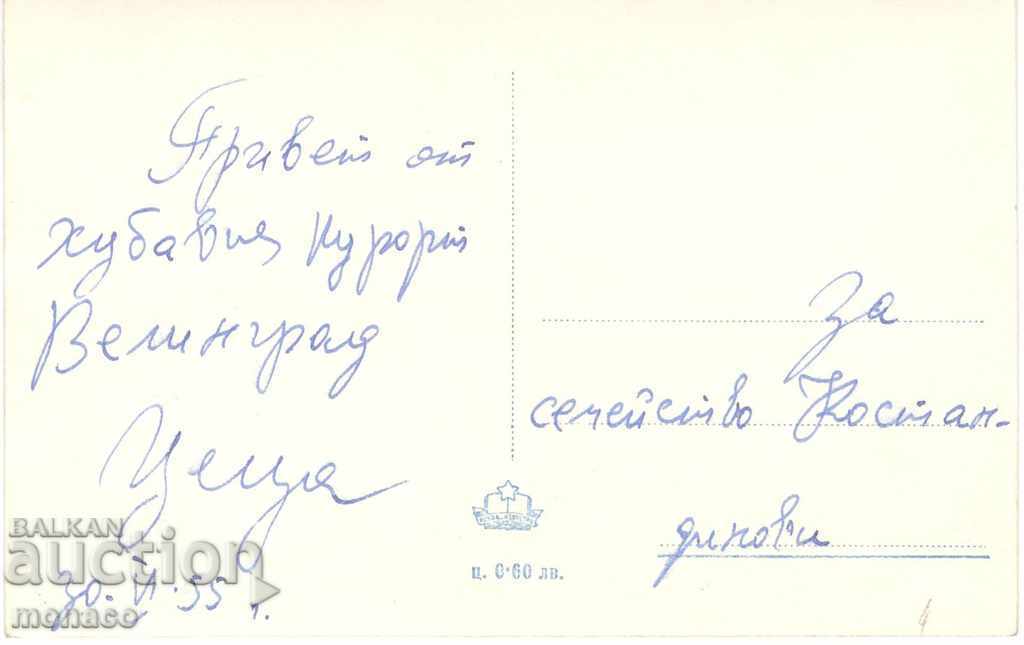 Привет от
хубавия курорт
Велинград
30. VI. 55 г.
За
семейство Костан-
динови
ц. 0·60 лв.
BALKAN
auction
monaco